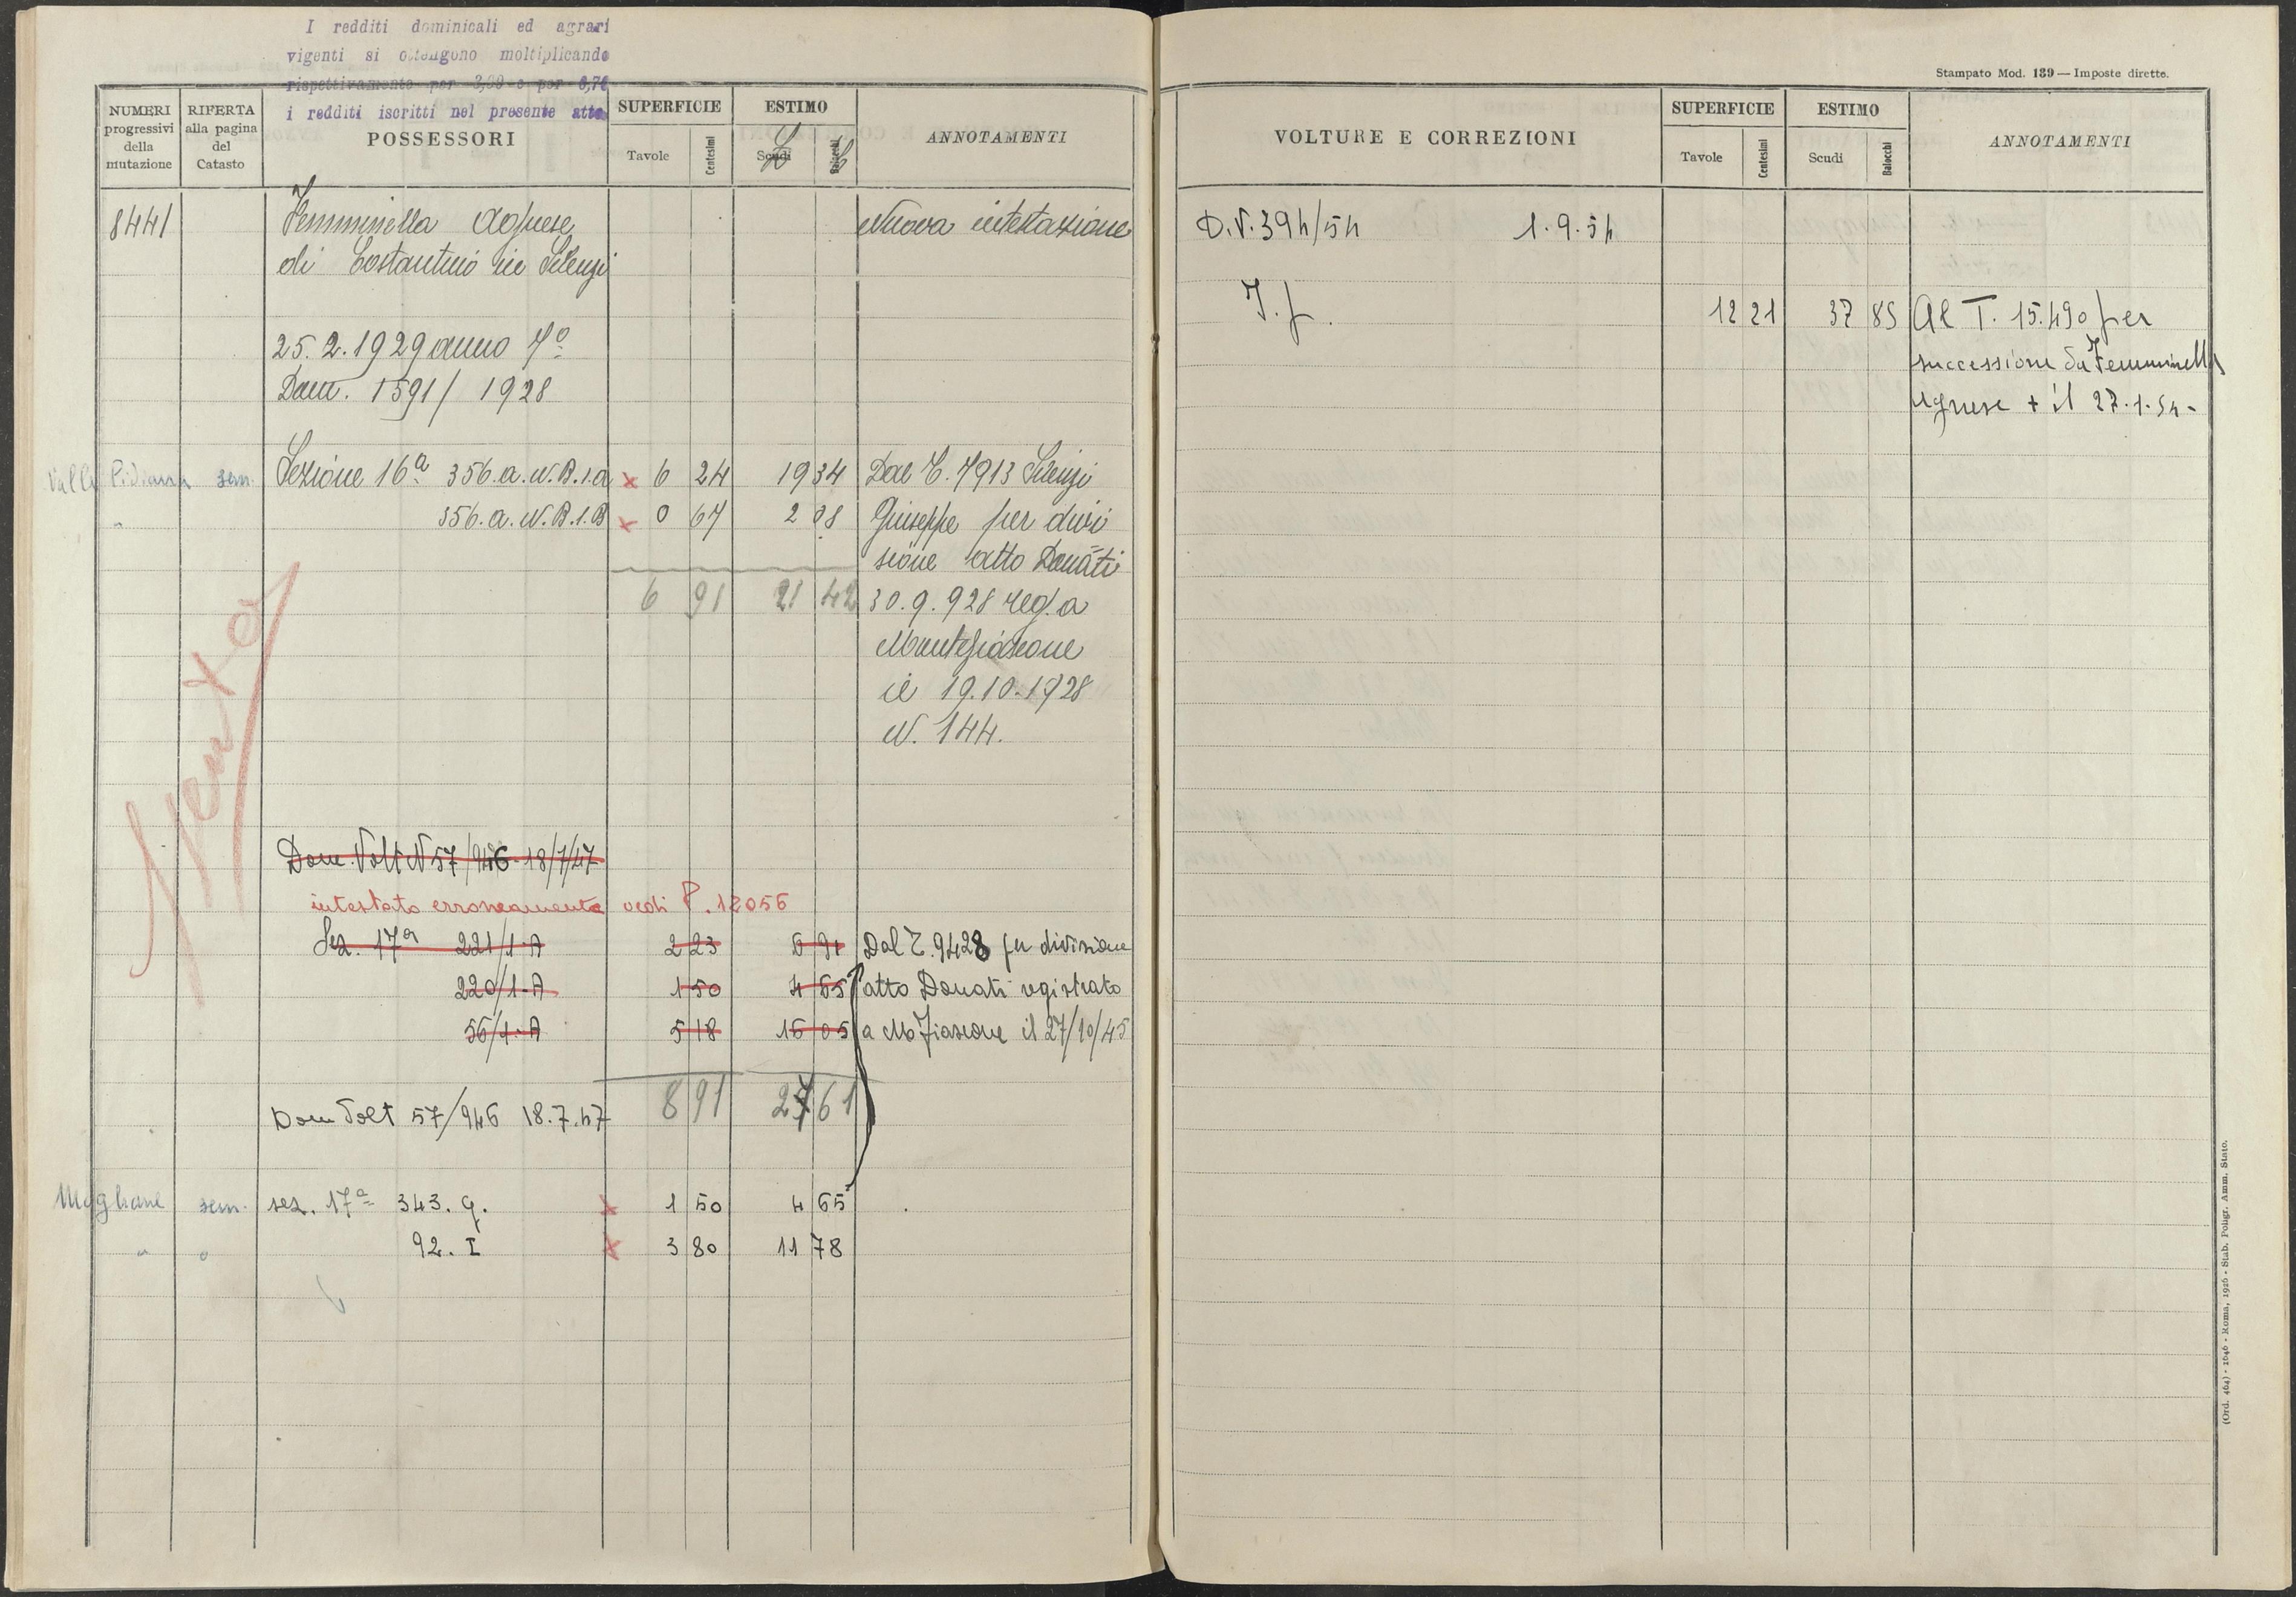 I redditi dominicali ed agrari
vigenti si ottengono moltiplicando
rispettivamente per 3,00 e per 6,76
i redditi iscritti nel presente atto
Stampato Mod. 139 — Imposte dirette.
NUMERI progressivi della mutazione
RIFERTA alla pagina del Catasto
POSSESSORI
SUPERFICIE
Tavole Centesimi
ESTIMO
Scudi Baiocchi
ANNOTAMENTI
VOLTURE E CORREZIONI
SUPERFICIE
Tavole Centesimi
ESTIMO
Scudi Baiocchi
ANNOTAMENTI
8441 Femminella Agnese Nuova intestazione
di Costantino in Silenzi
25.2.1929 anno 7º
Dom. 1591/1928
Valle Pidiana sem. Sezione 16ª 356.a.N.B.1.a x 6 24 19 34 Dal T. 7913 Silenzi
" 356.a.N.B.1.B x 0 67 2 08 Giuseppe per divi
sione atto Donati
6 91 21 42 30.9.928 reg. a
Montefiascone
il 19.10.1928
N. 144.
Spento
Dom. Volt N 57/946 18/7/47
intestato erroneamente vedi P. 12056
Sez. 17ª 221/1-A 2 23 6 91 Dal T. 9428 per divisione
220/1-A 1 50 4 65 atto Donati registrato
56/1-A 5 18 16 05 a Mo Fiascone il 27/10/45
8 91 27 61
Dom Volt 57/946 18.7.47
Mogliane sem. sez. 17ª 343. q. x 1 50 4 65
" " 92. I x 3 80 11 78
D.V. 394/54 1.9.54
I. f. 12 21 37 85 Al T. 15.490 per
successione da Femminella
Agnese + il 27.1.54-
(Ord. 464) - 1646 - Roma, 1926 - Stab. Poligr. Amm. Stato.